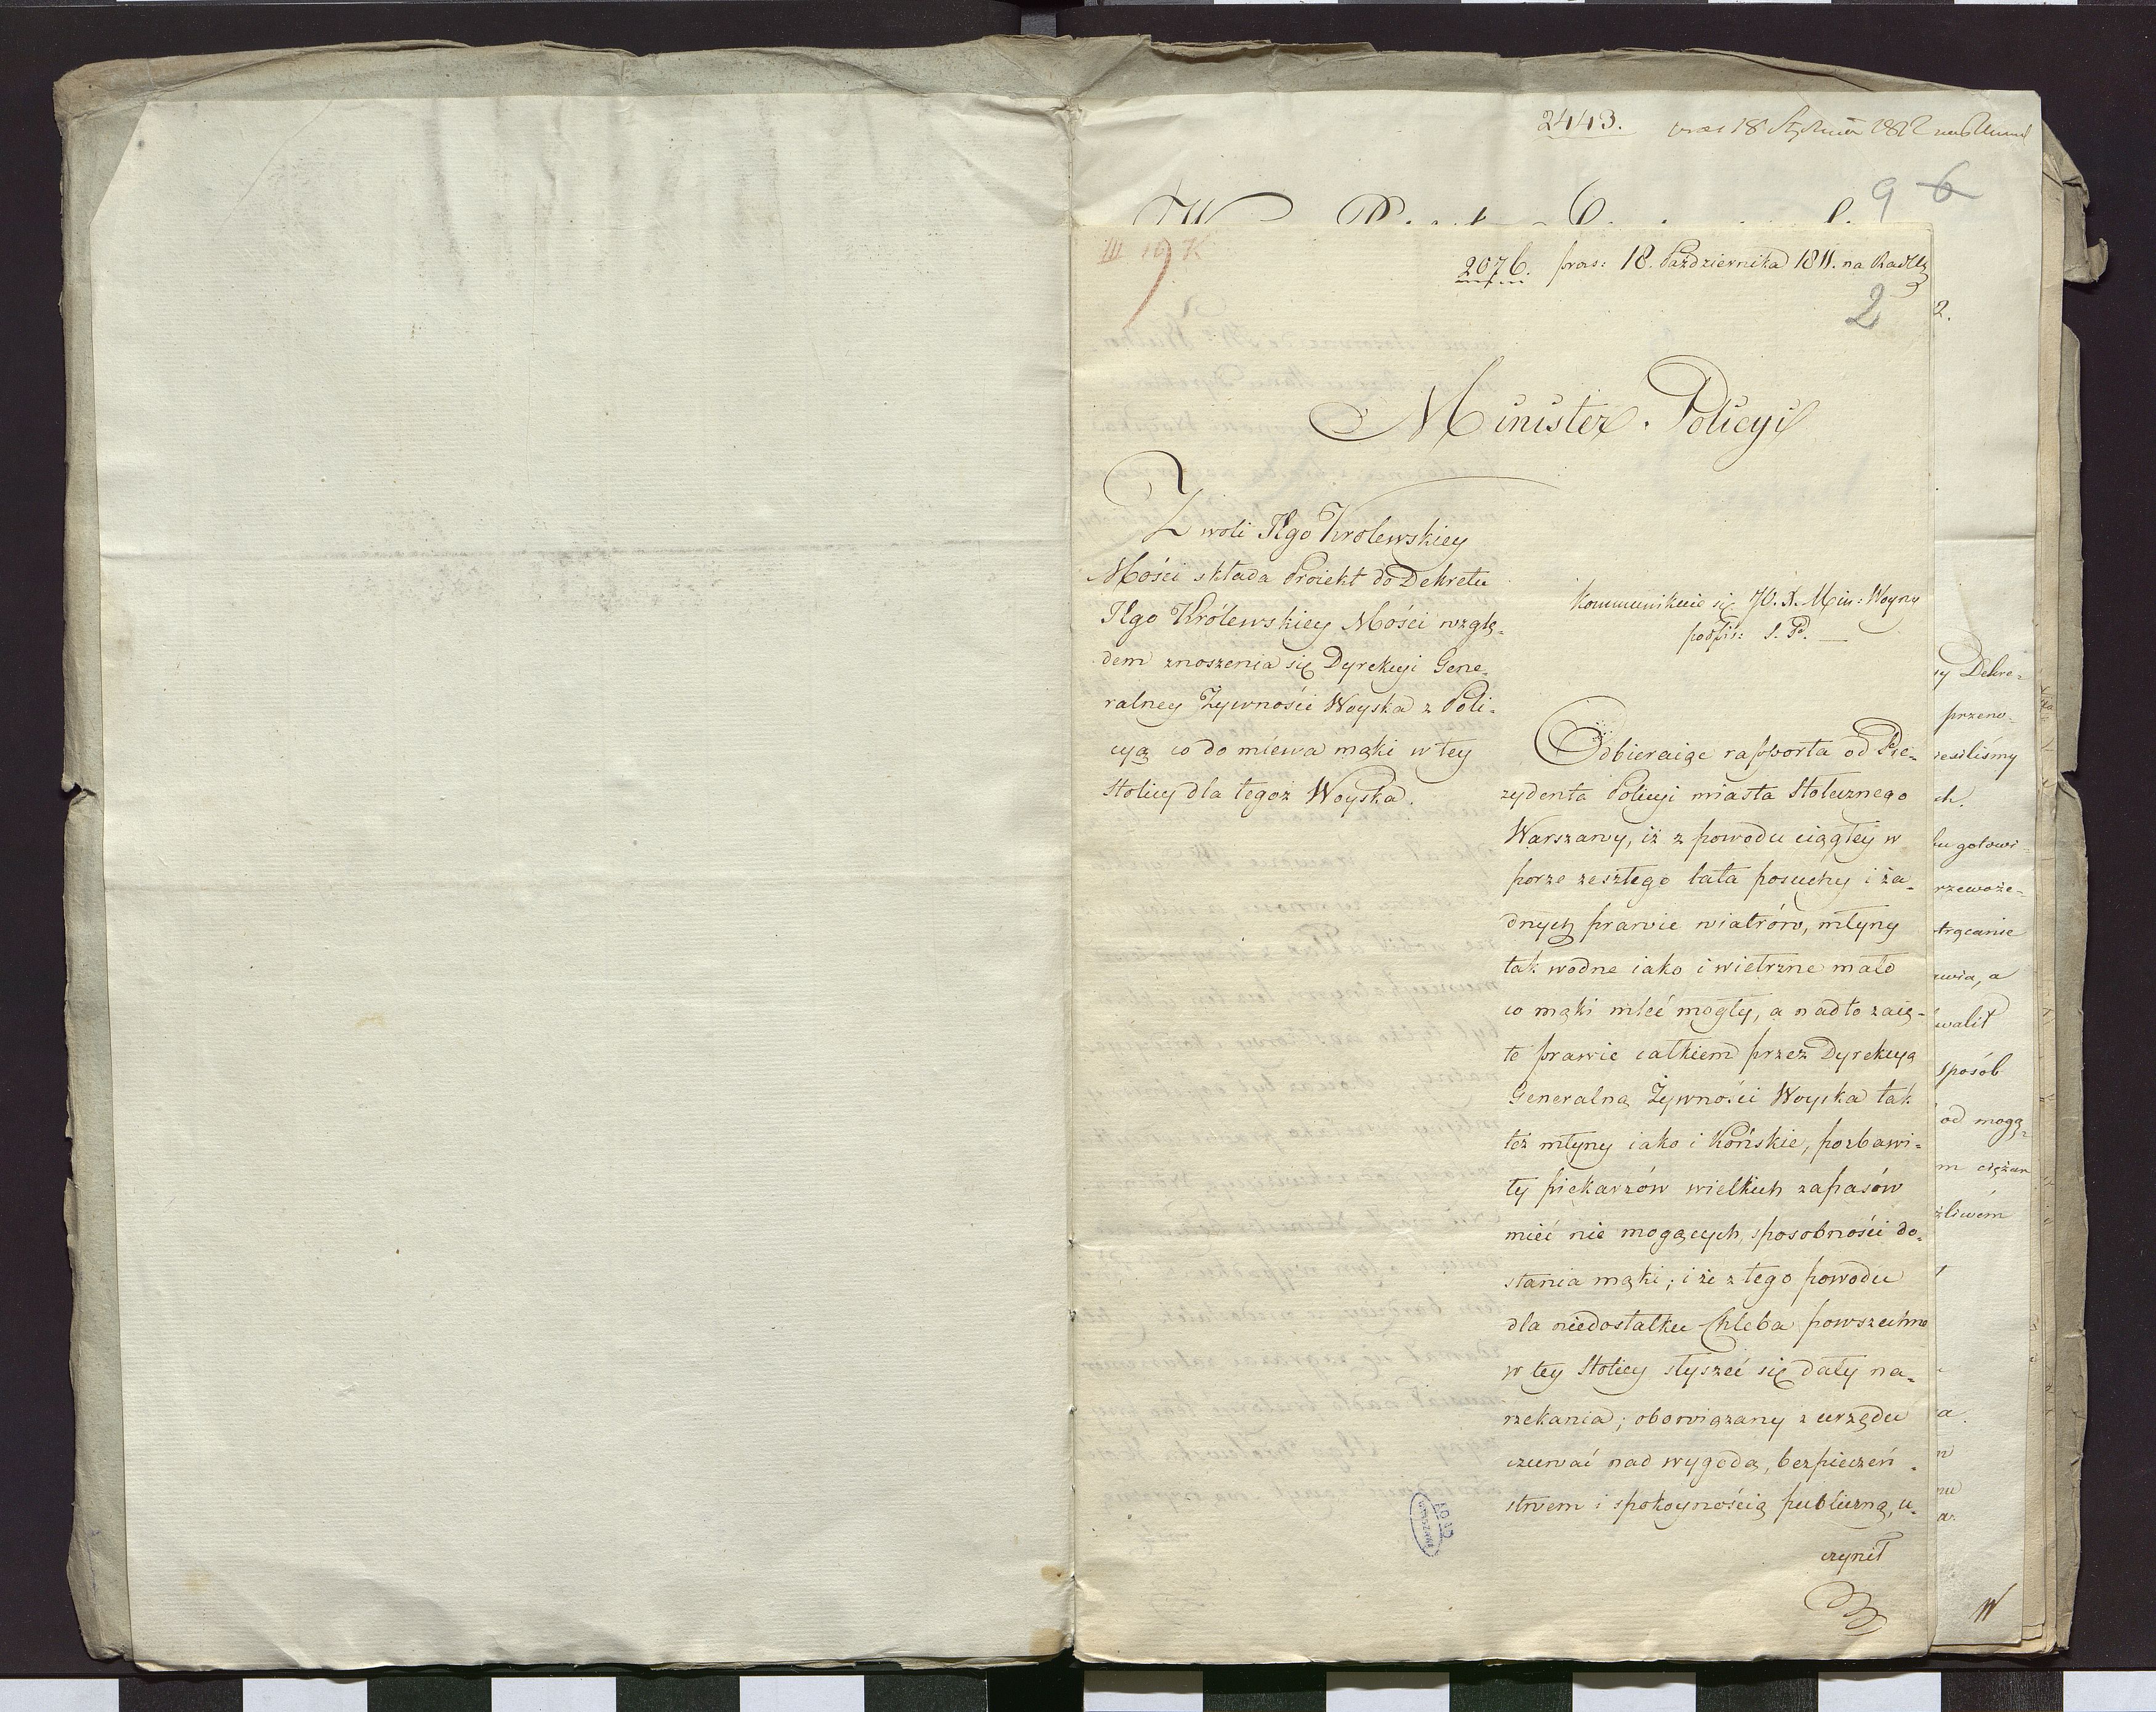 2443.
9 6
III 10 K
2076. pras: 18. Października 1811. na Radzę
2
Minister Policyi
Z woli JKgo Krolewskiey
Mości składa Proiekt do Dekretu
JKgo Królewskiey Mości wzglę-
dem znoszenia się Dyrekcyi Gene-
ralney Żywności Woyska z Poli-
cyą co do mlewa mąki w tey
Stolicy dla tegoż Woyska.
Kommunikuie się JO. X. Min: Woyny
podpis: S. P.
Odbieraiąc rapporta od Pre-
zydenta Policyi miasta Stołecznego
Warszawy, iż z powodu ciągłey w
porze zeszłego lata posuchy i ża-
dnych prawie wiatrów, młyny
tak wodne iako i wietrzne mało
co mąki mleć mogły, a nadto zaię-
te prawie całkiem przez Dyrekcyą
Generalną Żywności Woyska tak
też młyny iako i Końskie, pozbawi-
ły piekarzów wielkich zapasów
mieć nie mogących, sposobności do-
stania mąki; i że z tego powodu
dla niedostatku Chleba powszechne
w tey Stolicy słyszeć się dały na-
rzekania; obowiązany z urzędu
czuwać nad wygodą, bezpieczeń-
stwem i spokoynością publiczną, u-
czynił
2.
y Dekre-
przeno-
ieśliśmy
ch.
bu gotowi-
rzewoże-
trącanie
awia, a
walił
sposób
od mogą-
m ciężar
żliwém
a.
W